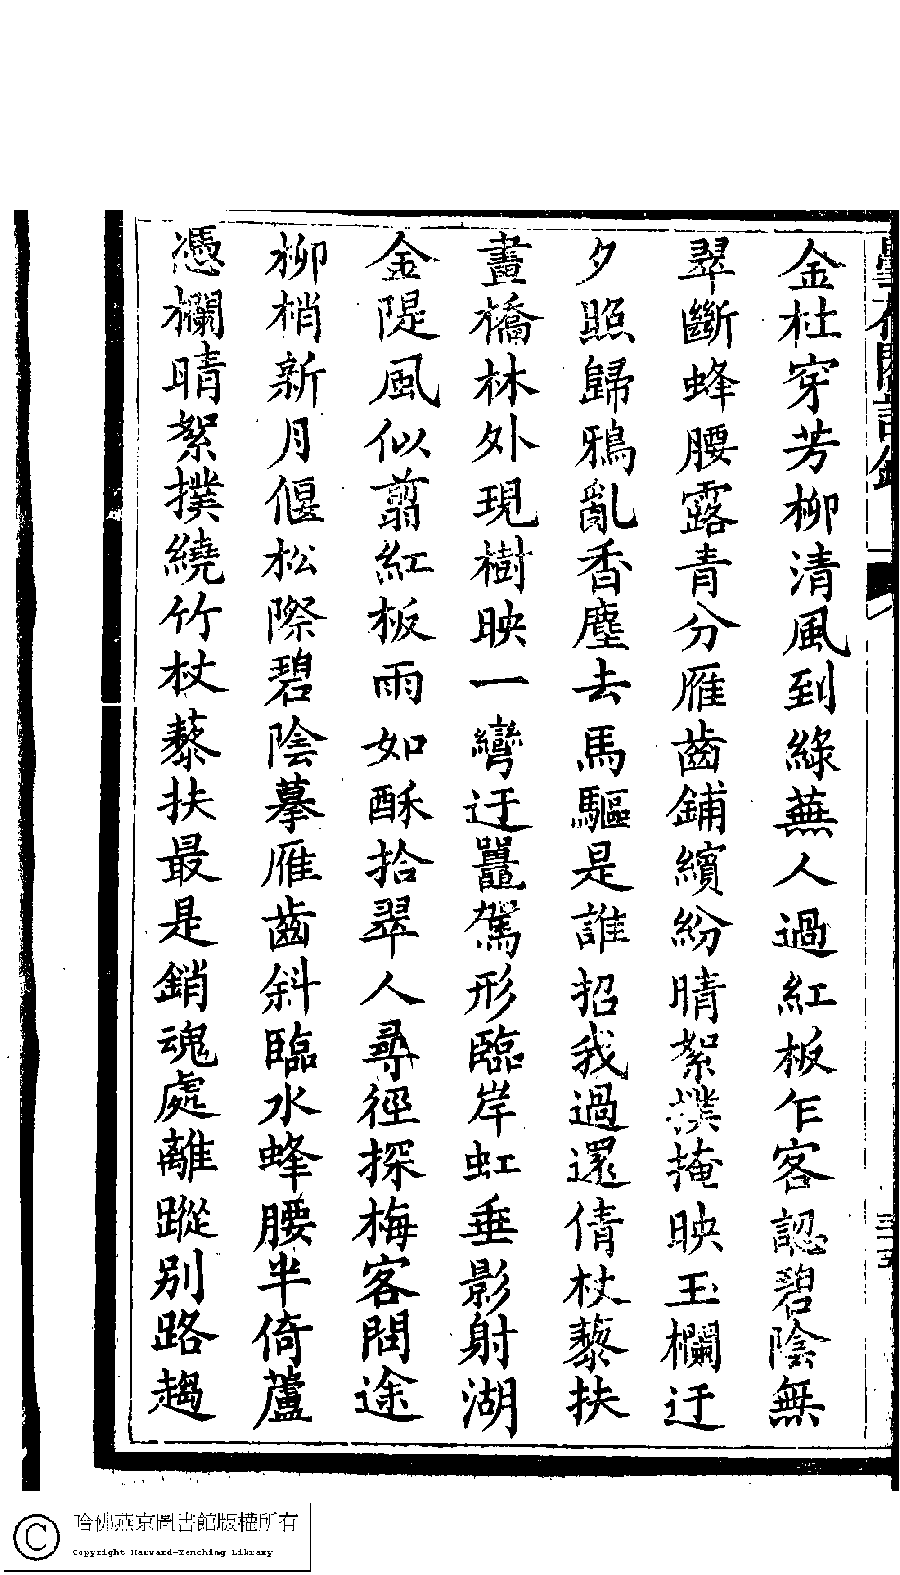 金杜穿芳柳清風到綠蕪人過紅板乍客認碧陰無
翠斷蜂腰露青分雁齒鋪繽紛晴絮撲掩映玉欄迂
夕照歸鴉亂香塵去馬驅是誰招我過還倩杖藜扶
畫橋林外現樹映一彎迂鼉駕形臨岸虹垂影射湖
金隄風似翦紅板雨如酥拾翠人尋徑探梅客問途
柳梢新月偃松際碧陰摹雁齒斜臨水蜂腰半倚蘆
憑欄晴絮撲繞竹杖藜扶最是銷魂處離蹤別路趨
哈佛燕京圖書館版權所有
Copyright Harvard-Yenching Library